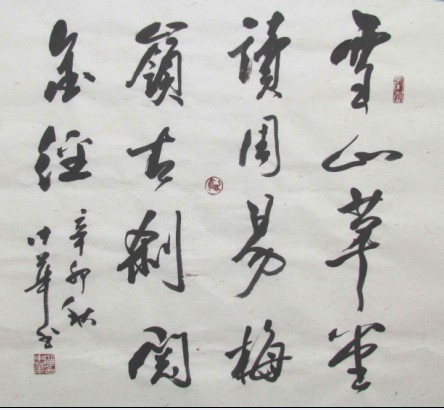 雪山草堂
讀周易梅
嶺古刹閲
金經
辛卯秋
華书